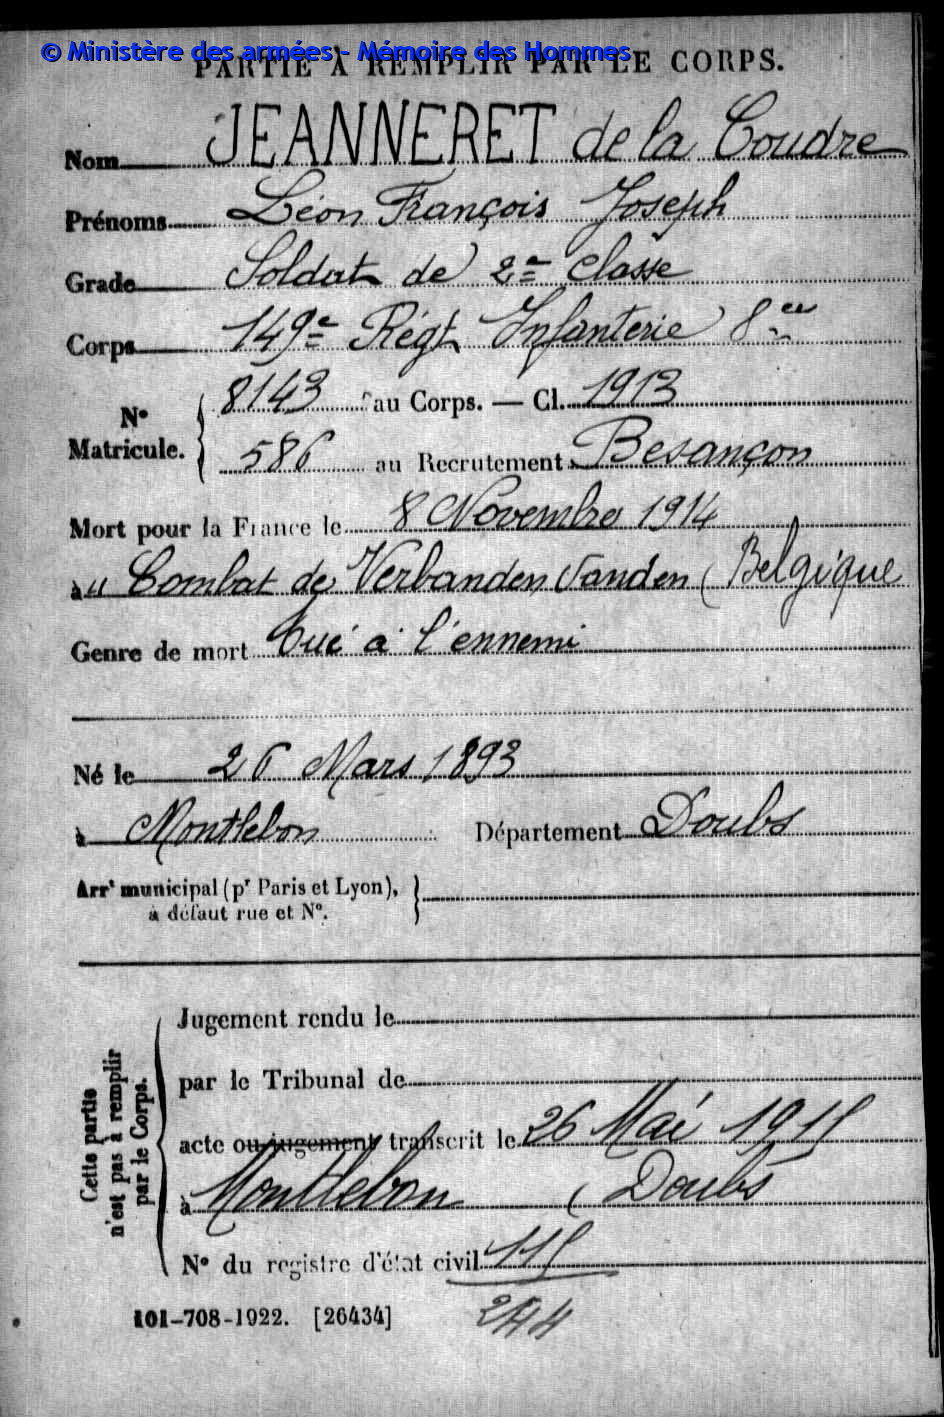 © Ministère des armées - Mémoire des Hommes
PARTIE À REMPLIR PAR LE CORPS.
Nom JEANNERET de la Coudre
Prénoms Léon François Joseph
Grade Soldat de 2e classe
Corps 149e Régt Infanterie 8
N° Matricule. { 8143 au Corps. — Cl. 1913
586 au Recrutement Besançon
Mort pour la France le 8 Novembre 1914
à " Combat de Verbanden Vanden (Belgique
Genre de mort Tué à l'ennemi
Né le 26 Mars 1893
à Montlebon Département Doubs
Arrt municipal (pr Paris et Lyon), }
à défaut rue et N°.
Cette partie n'est pas à remplir par le Corps.
Jugement rendu le
par le Tribunal de
acte ou jugement transcrit le 26 Mai 1915
à Montlebon (Doubs
N° du registre d'état civil 115
244
101-708-1922. [26434]